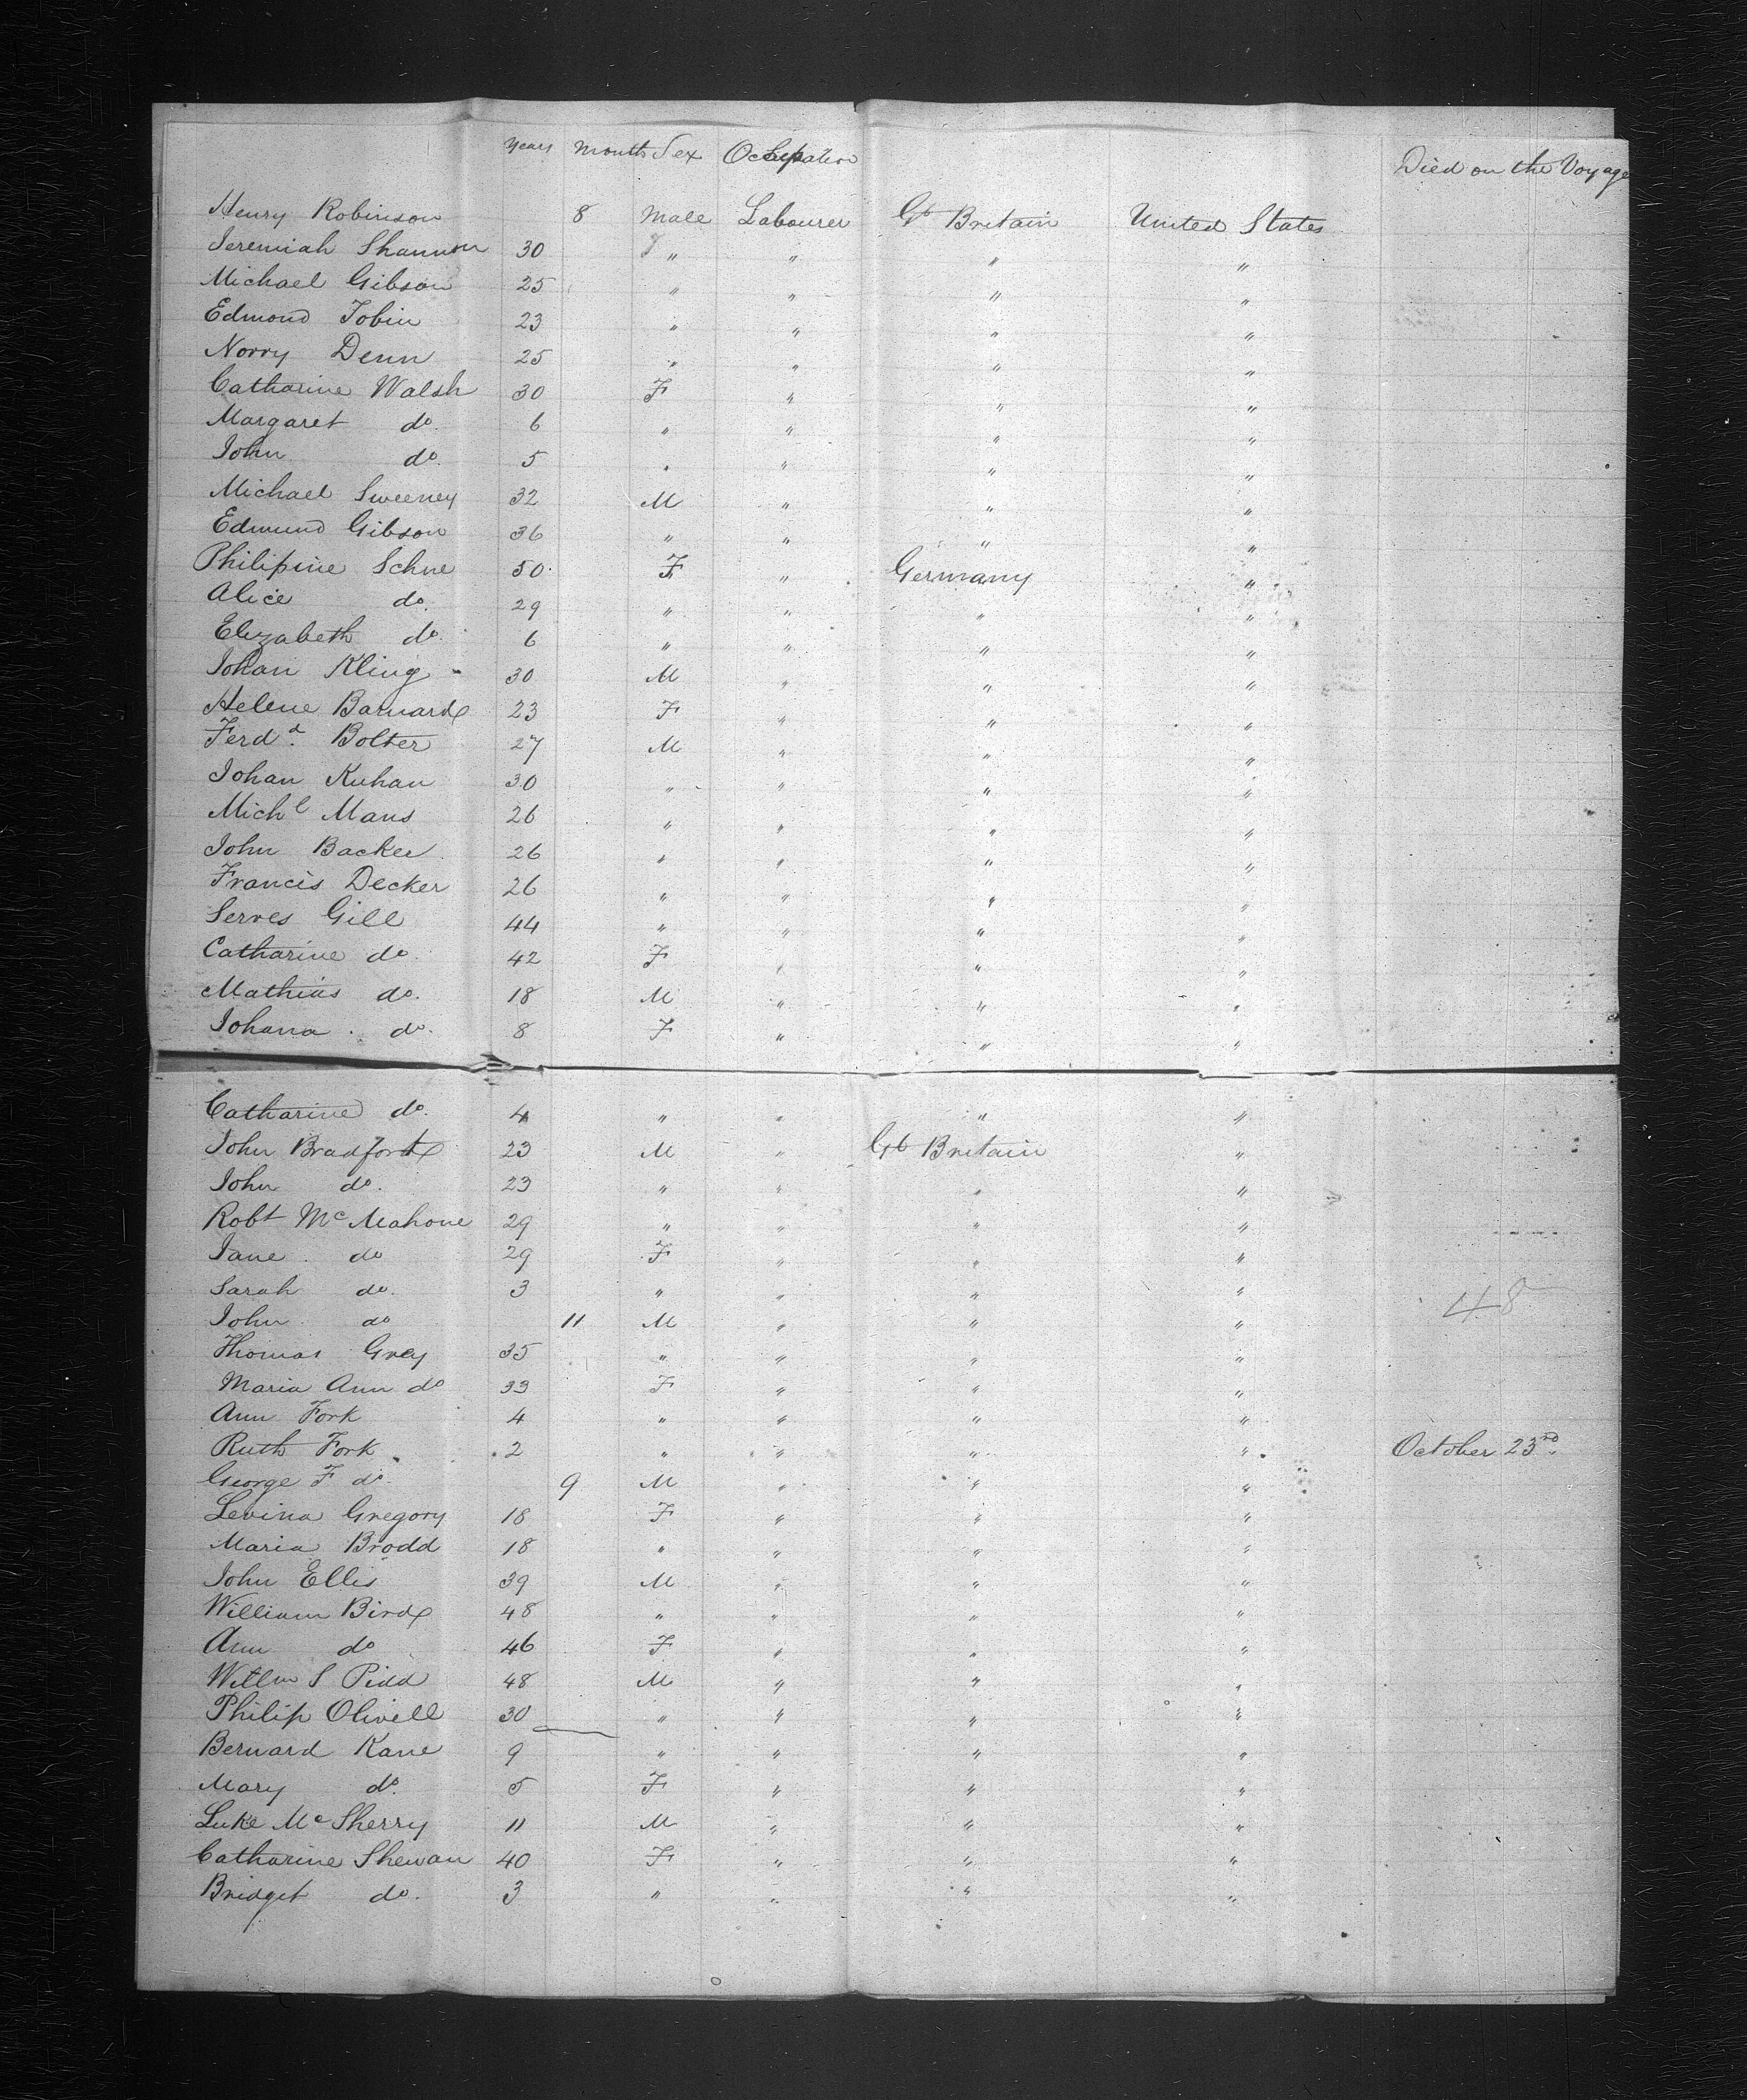 Years Month Sex Occupation Died on the Voyage
Henry Robinson 8 Male Labourer Gt Britain United States
Jeremiah Shannon 30 " " " "
Michael Gibson 25 " " " "
Edmond Tobin 23 " " " "
Norry Denn 25 " " " "
Catharine Walsh 30 F " " "
Margaret do. 6 " " " "
John do. 5 " " " "
Michael Sweeney 32 M " " "
Edmund Gibson 36 " " " "
Philipine Schne 50 F " Germany "
Alice do. 29 " " " "
Elizabeth do. 6 " " " "
Johan Kling 30 M " " "
Helene Barnard 23 F " " "
Ferdd. Bolter 27 M " " "
Johan Kuhan 30 " " " "
Michl Mans 26 " " " "
John Backer 26 " " " "
Francis Decker 26 " " " "
Serves Gill 44 " " " "
Catharine do. 42 F " " "
Mathias do. 18 M " " "
Johana do. 8 F " " "
Catharine do. 4 " " " "
John Bradford 23 M " Gt Britain "
John do. 23 " " " "
Robt McMahone 29 " " " "
Jane do 29 F " " "
Sarah do. 3 " " " "
John do 11 M " " "
48
Thomas Grey 35 " " " "
Maria Ann do 33 F " " "
Ann Fork 4 " " " "
Ruth Fork 2 " " " " October 23rd
George F do. 9 M " " "
Levina Gregory 18 F " " "
Maria Brodd 18 " " " "
John Ellis 39 M " " "
William Bird 48 " " " "
Ann do 46 F " " "
Willm S Pidd 48 M " " "
Philip Olivell 30 " " " "
Bernard Kane 9 " " " "
Mary do. 5 F " " "
Luke McSherry 11 M " " "
Catharine Shewan 40 F " " "
Bridget do. 3 " " " "